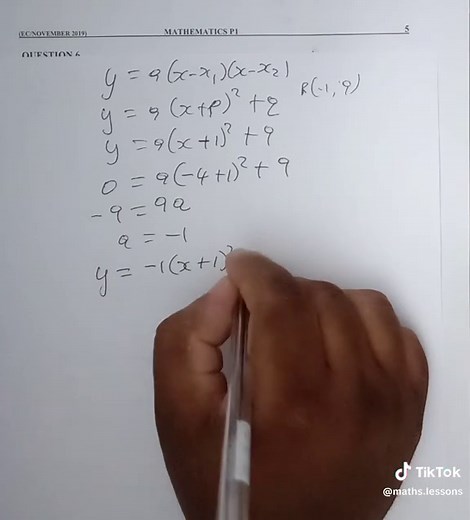 (EC/NOVEMBER 2019) MATHEMATICS P1 5
QUESTION 6
y = a(x-x₁)(x-x₂)
y = a(x+p)² + q R(-1; 9)
y = a(x+1)² + 9
0 = a(-4+1)² + 9
-9 = 9a
a = -1
y = -1(x+1)²
TikTok
@maths.lessons